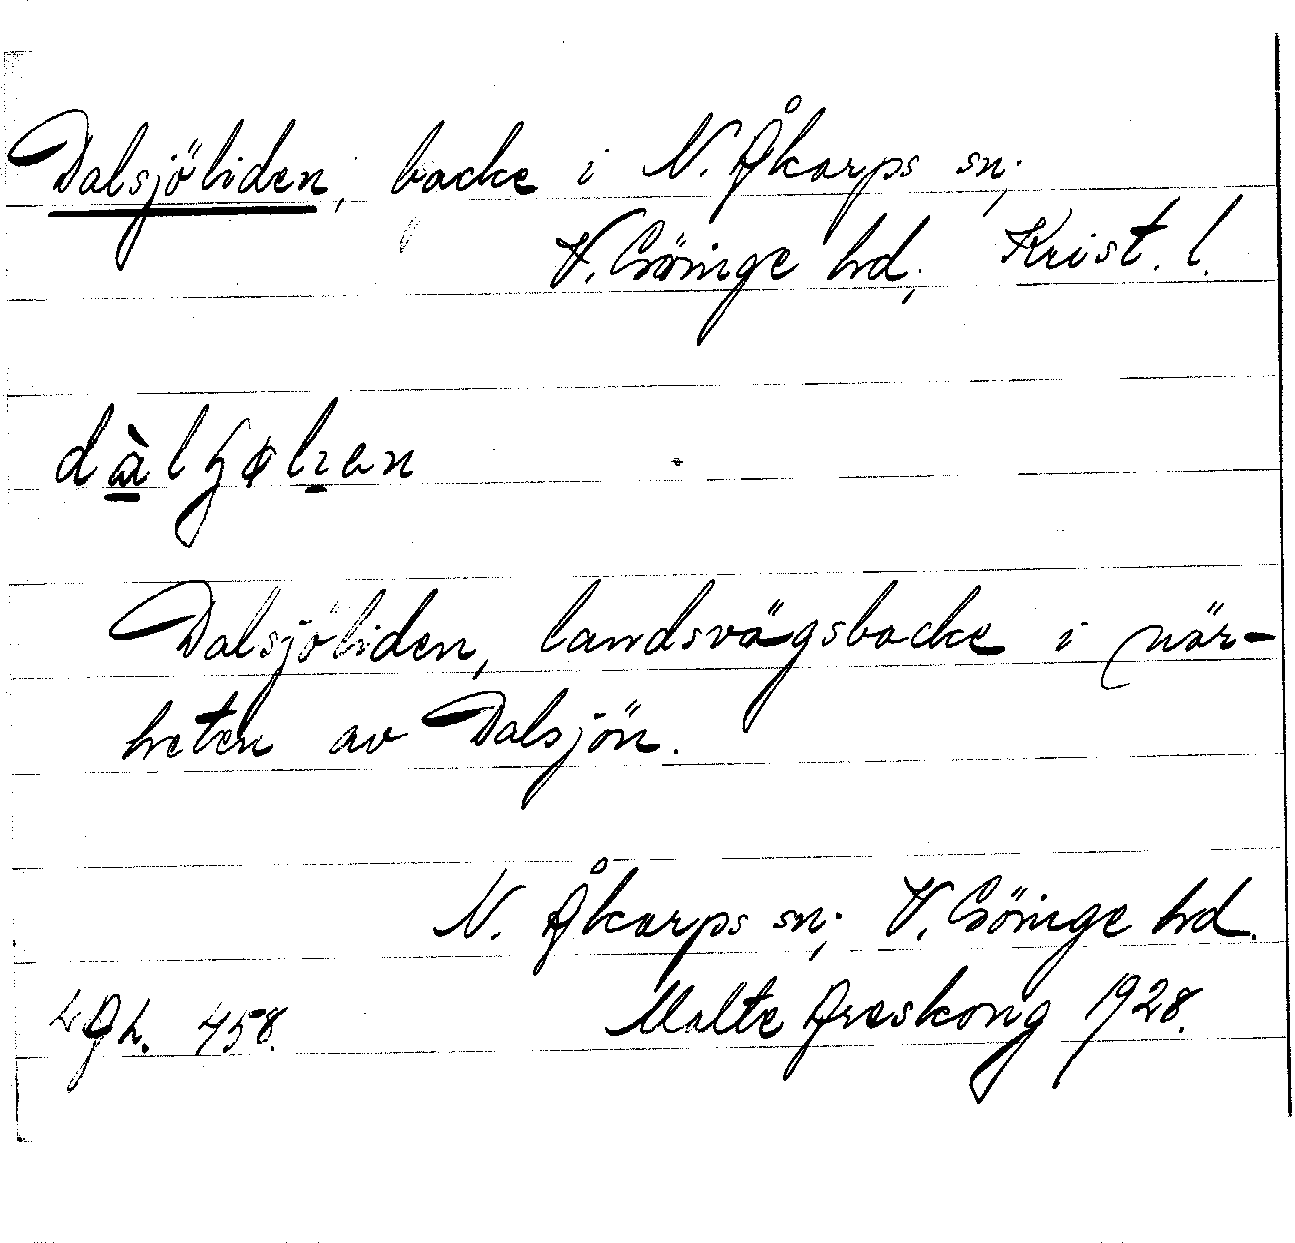 Dalsjöliden, backe i N. Åkarps sn;
V. Göinge hd; Krist. l.
Dalsjöliden, landsvägsbacke i när-
heten av Dalsjön.
N. Åkarps sn; V. Göinge hd.
458. Malte Areskong 1928.